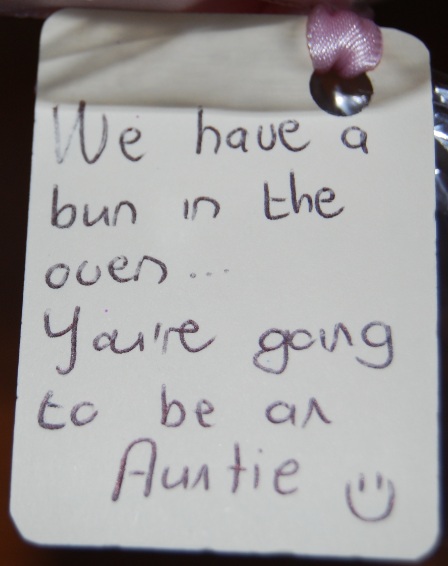 We have a
bun in the
oven...
You're going
to be an
Auntie